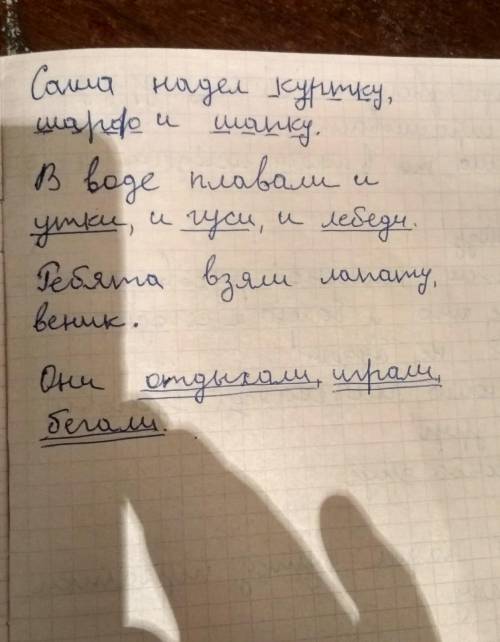 Саша надел куртку,
шарф и шапку.
В воде плавали и
утки, и гуси, и лебеди.
Ребята взяли лапату,
веник.
Они отдыхали, играли,
бегали.